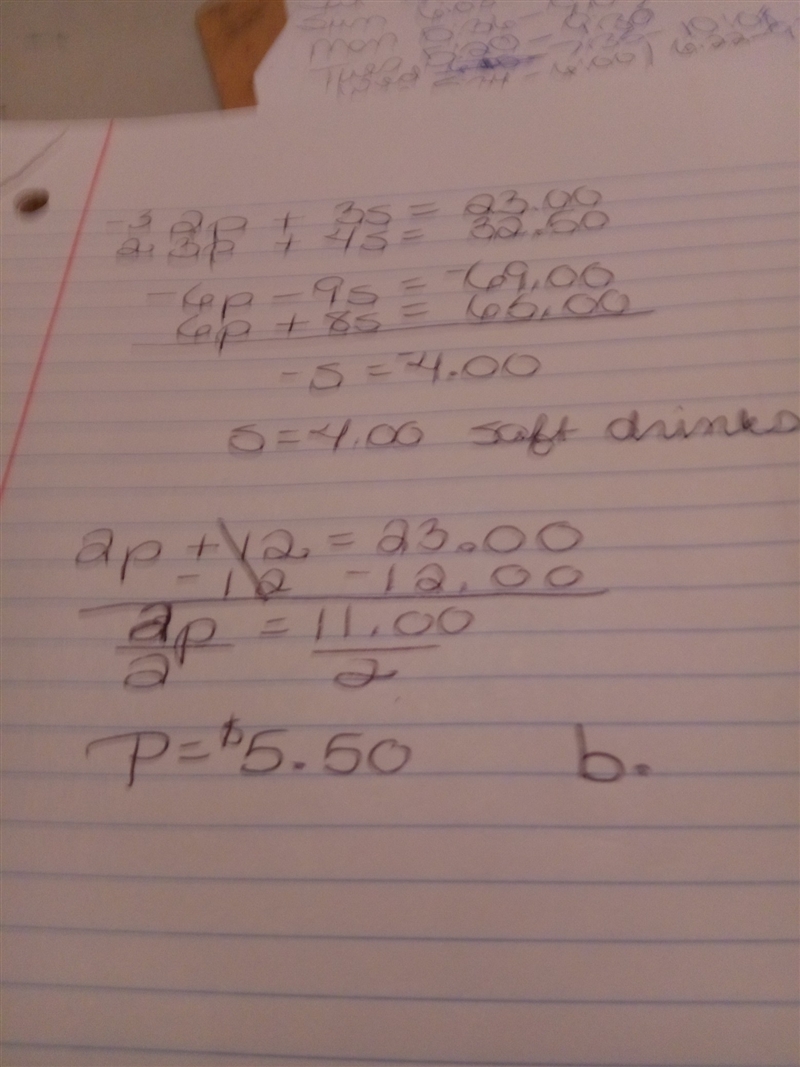 Sun
mon
-3 2p + 3s = 23.00
2. 3p + 4s = 32.50
-6p - 9s = -69.00
6p + 8s = 65.00
-s = -4.00
s = 4.00 soft drinks
2p + 12 = 23.00
- 12 -12.00
2p = 11.00
2 2
P = $5.50 b.